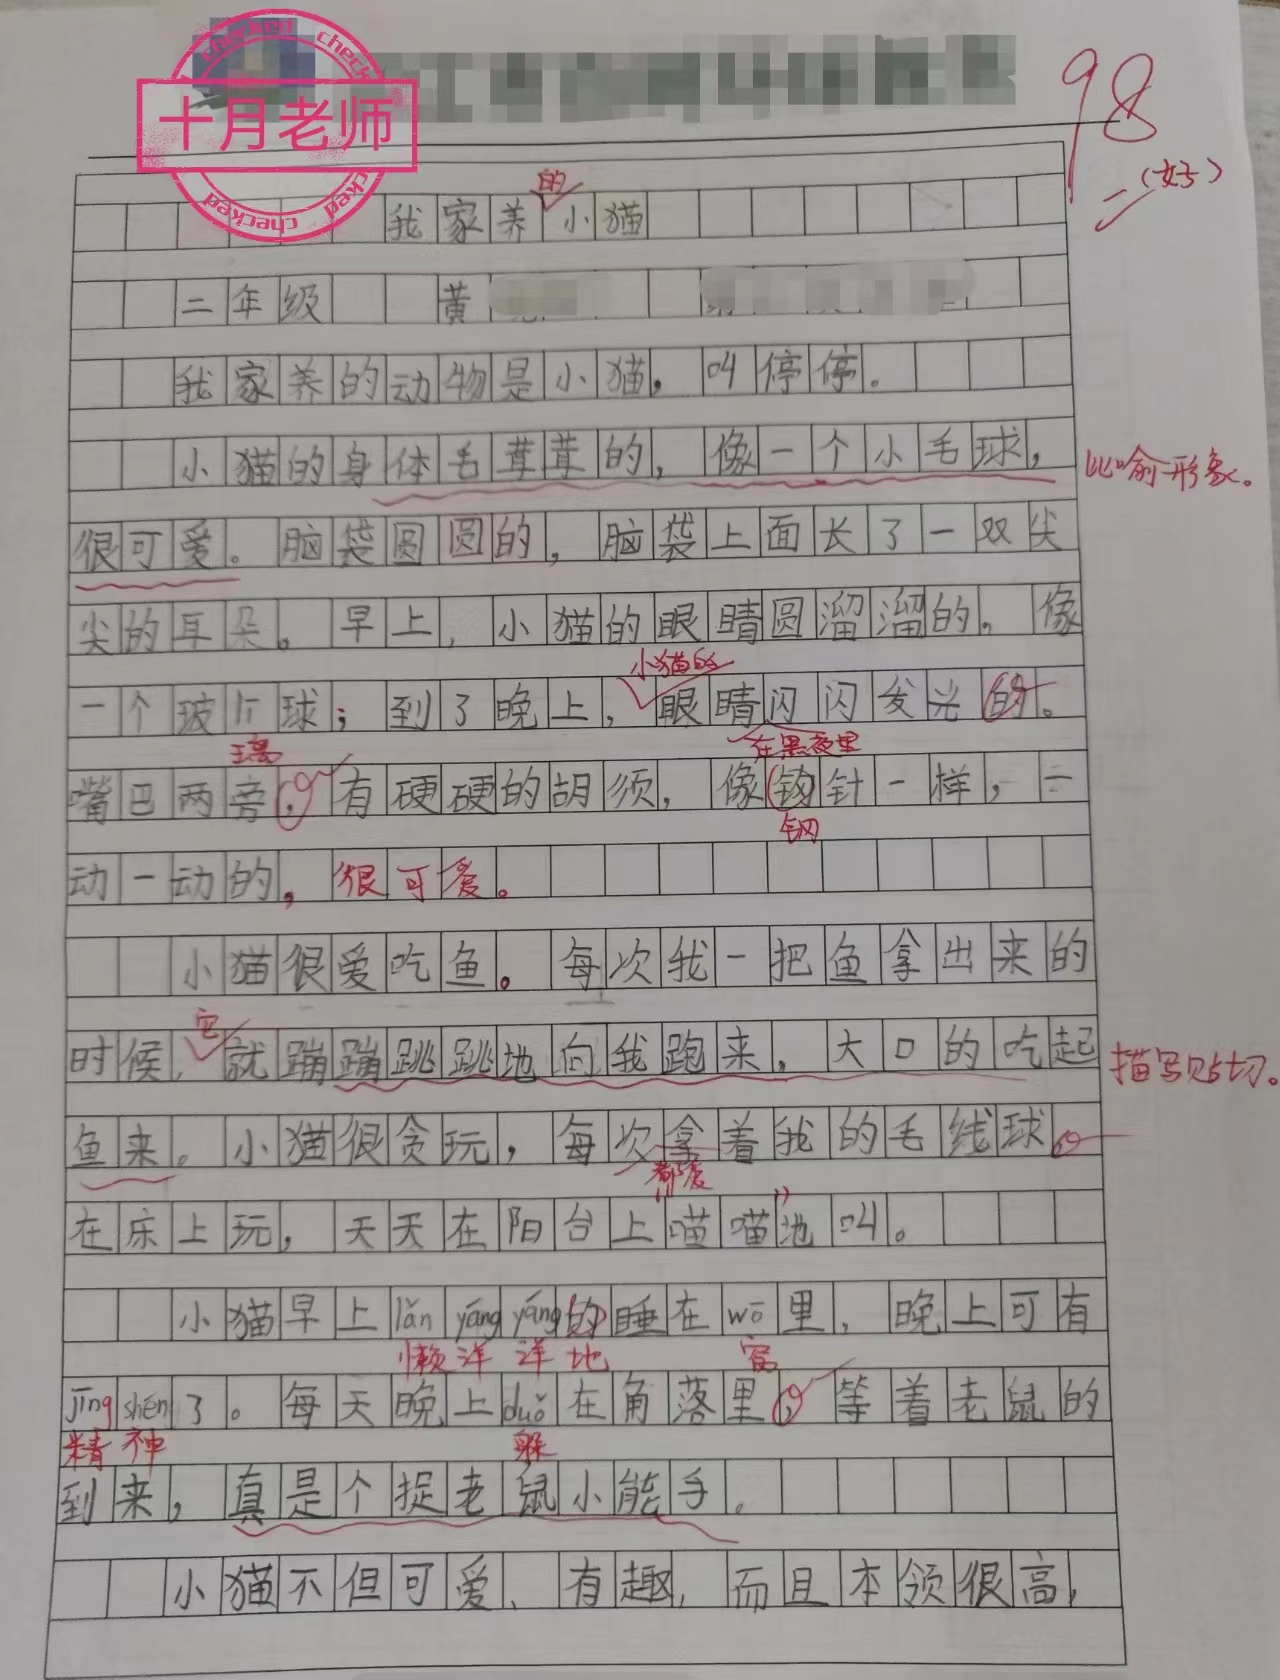 checked checked
十月老师
checked checked
98
（好）
的
我家养小猫
二年级 黄
我家养的动物是小猫，叫停停。
小猫的身体毛茸茸的，像一个小毛球，
比喻形象。
很可爱。脑袋圆圆的，脑袋上面长了一双尖
尖的耳朵。早上，小猫的眼睛圆溜溜的。像
小猫的
一个玻片球；到了晚上，眼睛闪闪发光的。
璃 在黑夜里
嘴巴两旁，有硬硬的胡须，像钩针一样，一
钢
动一动的，很可爱。
小猫很爱吃鱼。每次我一把鱼拿出来的
它
时候，就蹦蹦跳跳地向我跑来，大口的吃起
描写贴切。
鱼来。小猫很贪玩，每次拿着我的毛线球。
都爱
在床上玩，天天在阳台上喵喵地叫。
“ ”
小猫早上lǎn yáng yáng的睡在wō里，晚上可有
懒洋洋地 窝
jīng shén了。每天晚上duǒ在角落里，等着老鼠的
精神 躲
到来，真是个捉老鼠小能手。
小猫不但可爱、有趣，而且本领很高，